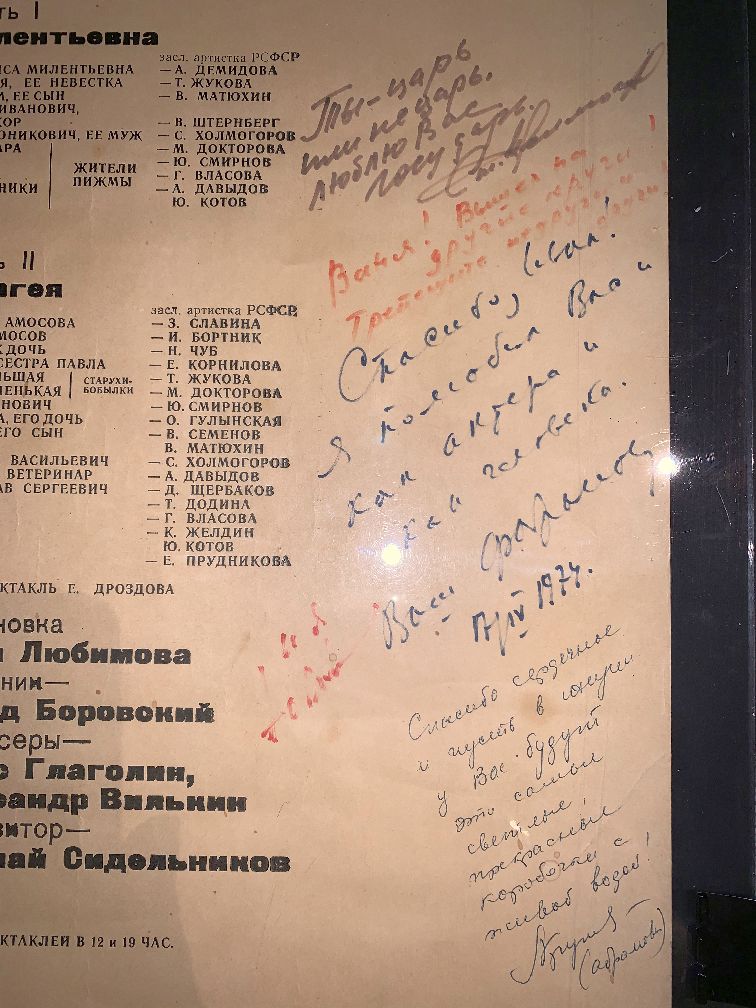 ть I
лентьевна
засл. артистка РСФСР
ИСА МИЛЕНТЬЕВНА — А. ДЕМИДОВА
Я, ЕЕ НЕВЕСТКА — Т. ЖУКОВА
М, ЕЕ СЫН — В. МАТЮХИН
ИВАНОВИЧ,
КОР — В. ШТЕРНБЕРГ
ОНИКОВИЧ, ЕЕ МУЖ — С. ХОЛМОГОРОВ
АРА — М. ДОКТОРОВА
ЖИТЕЛИ — Ю. СМИРНОВ
НИКИ ПИЖМЫ — Г. ВЛАСОВА
— А. ДАВЫДОВ
Ю. КОТОВ
ь II
агея
засл. артистка РСФСР
АМОСОВА — З. СЛАВИНА
МОСОВ — И. БОРТНИК
Х ДОЧЬ — Н. ЧУБ
СЕСТРА ПАВЛА — Е. КОРНИЛОВА
ЬШАЯ СТАРУХИ- — Т. ЖУКОВА
ЕНЬКАЯ БОБЫЛКИ — М. ДОКТОРОВА
АНОВИЧ — Ю. СМИРНОВ
А, ЕГО ДОЧЬ — О. ГУЛЫНСКАЯ
ЕГО СЫН — В. СЕМЕНОВ
В. МАТЮХИН
ВАСИЛЬЕВИЧ — С. ХОЛМОГОРОВ
ВЕТЕРИНАР — А. ДАВЫДОВ
АВ СЕРГЕЕВИЧ — Д. ЩЕРБАКОВ
— Т. ДОДИНА
— Г. ВЛАСОВА
— К. ЖЕЛДИН
Ю. КОТОВ
— Е. ПРУДНИКОВА
КТАКЛЬ Е. ДРОЗДОВА
новка
Любимова
ник—
д Боровский
серы—
с Глаголин,
сандр Вилькин
зитор—
лай Сидельников
КТАКЛЕЙ В 12 и 19 ЧАС.
Ты – царь
или не царь.
Люблю Вас
государь.
Ваня! Вышел на
другие круги!
Трепещите недруги и
други!
Спасибо, Иван!
Я полюбил Вас и
как актера и
как человека.
Ваш Ф. Абрамов
17/IV 1974.
Спасибо сердечное
и пусть в жизни
у Вас будут
это самые
светлые,
прекрасные
коробочки с
живой водой!
(Абрамова)